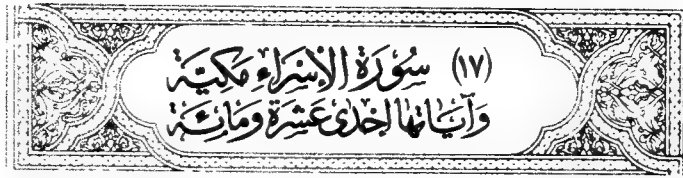 (١٧) سُوْرَةُ الْإِسْرَاءِ مَكِّيَّةٌ
وَآيَاتُهَا إِحْدَى عَشْرَةَ وَمِائَةٌ